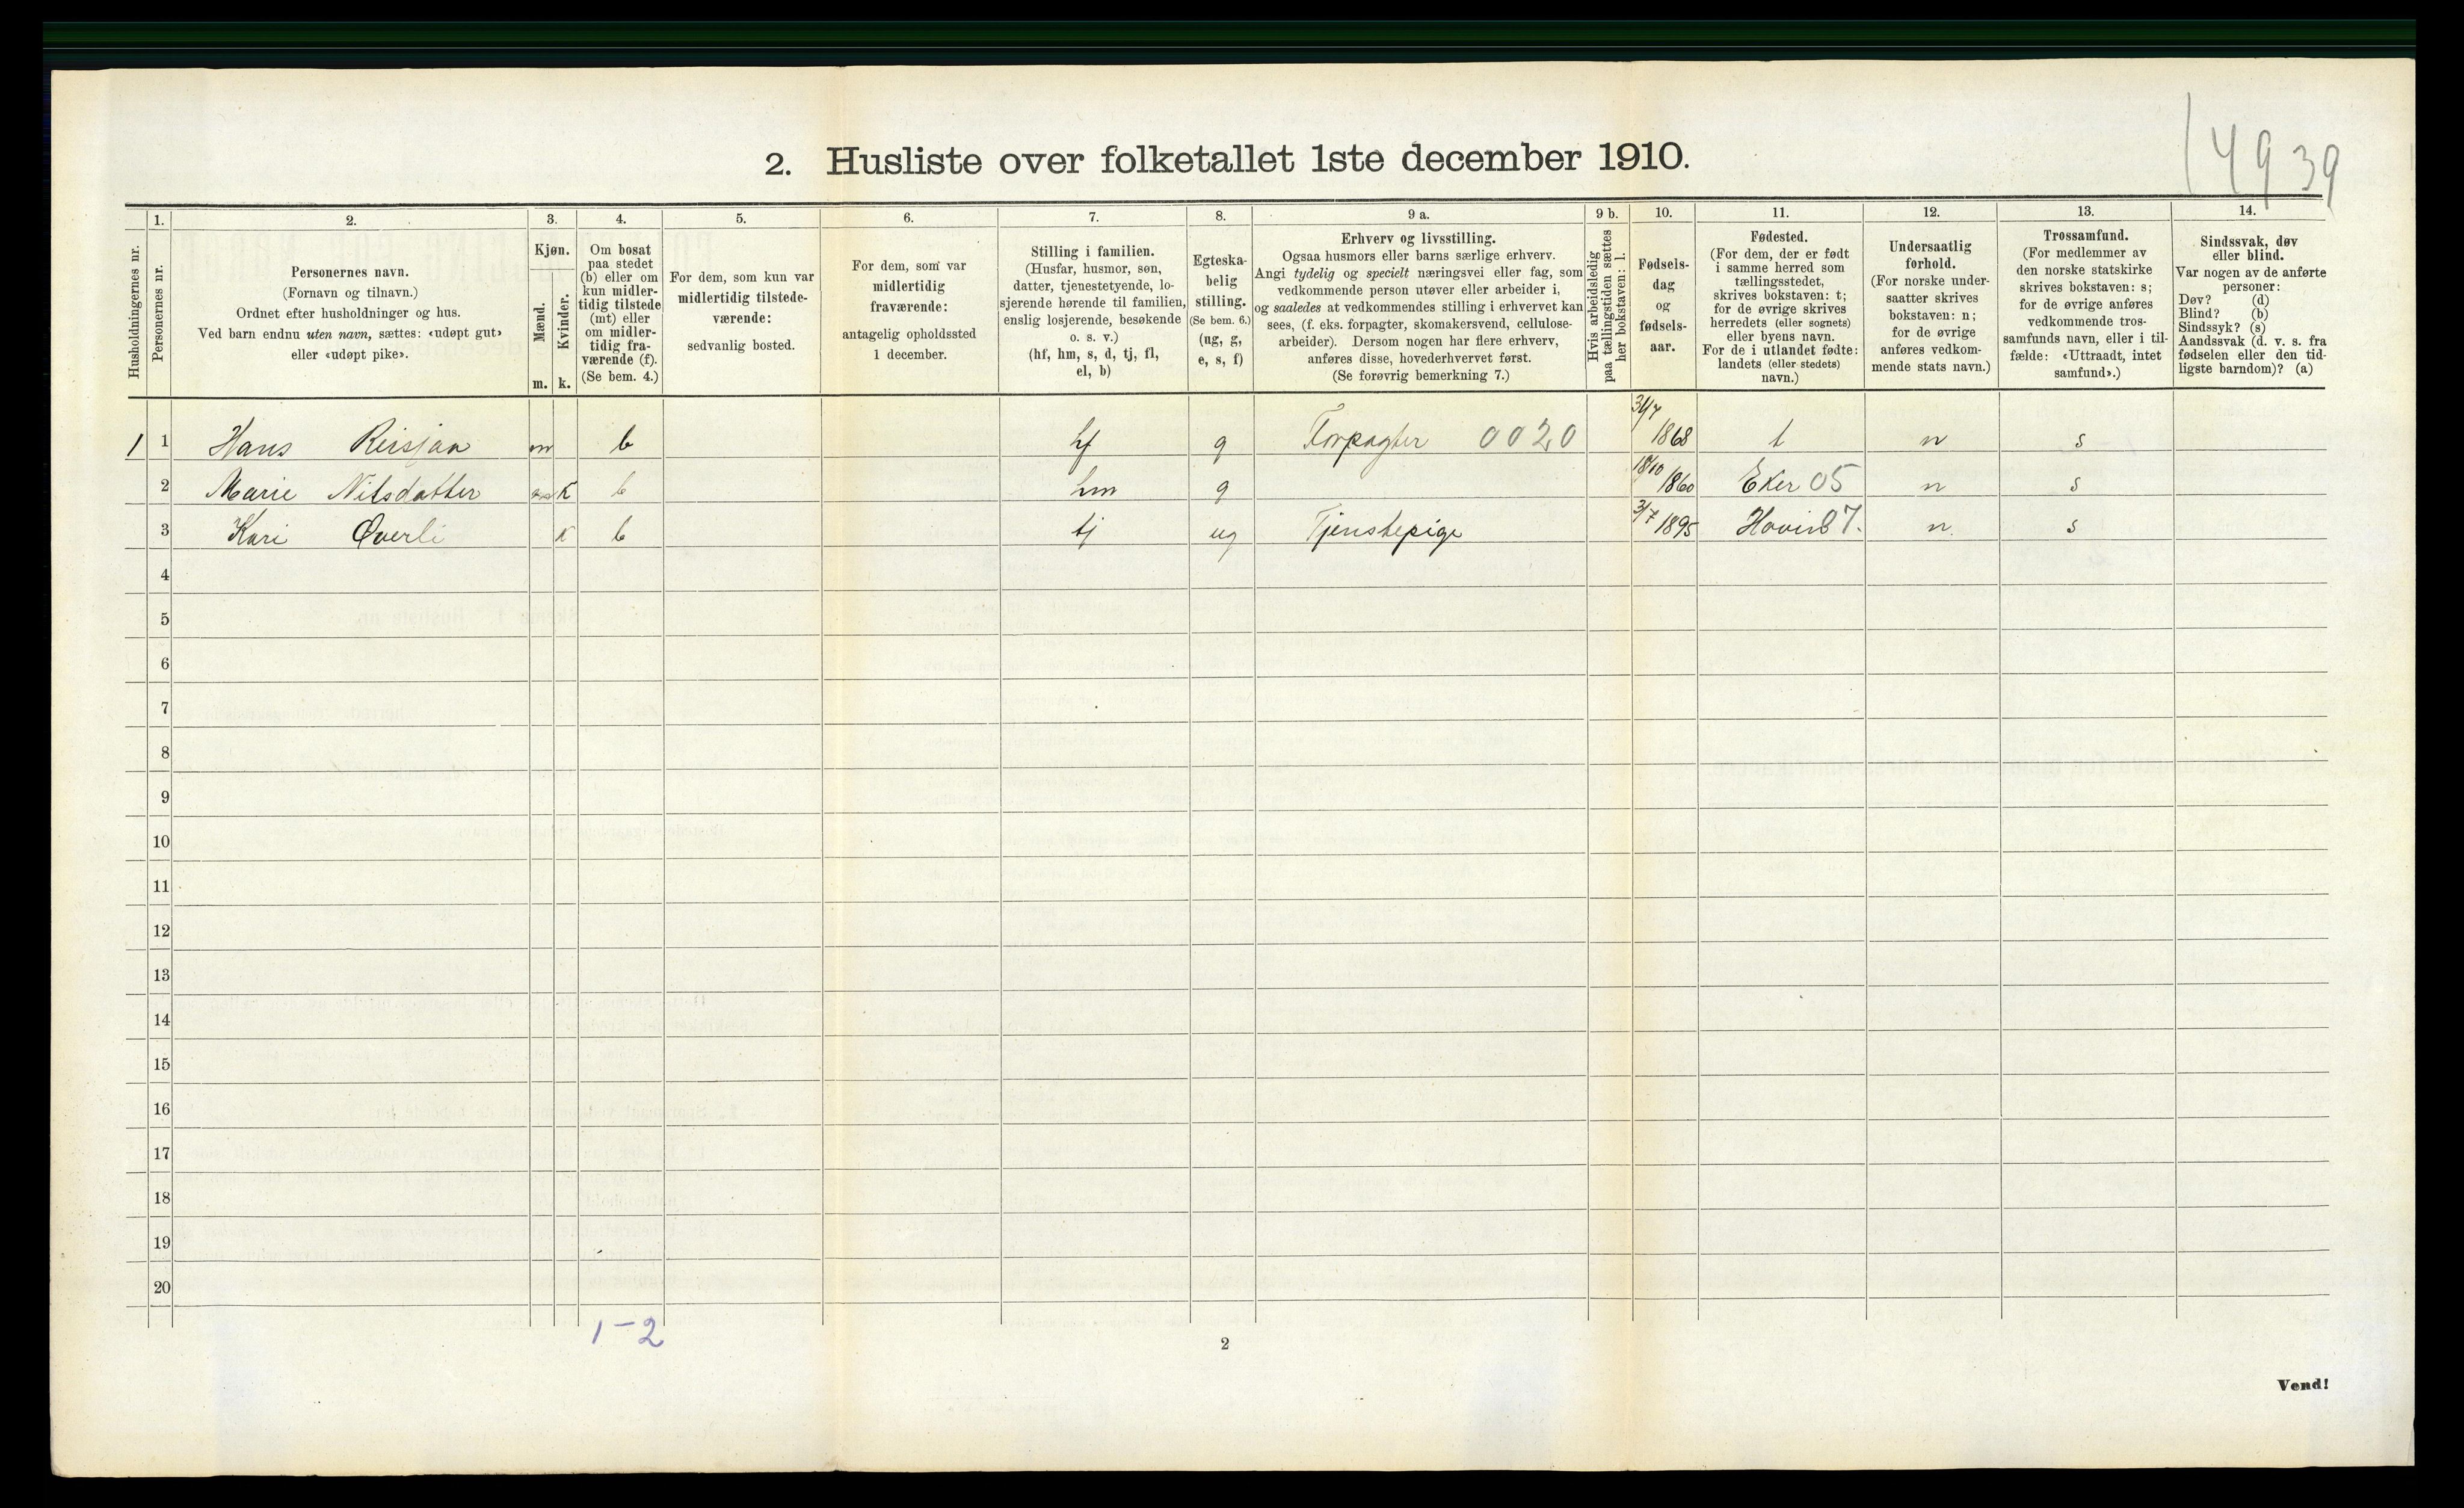 4939
2. Husliste over folketallet 1ste december 1910.
Husholdningernes nr.
1.
Personernes nr.
2.
Personernes navn.
(Fornavn og tilnavn.)
Ordnet efter husholdninger og hus.
Ved barn endnu uten navn, sættes: «udøpt gut»
eller «udøpt pike».
3.
Kjøn.
Mænd.
Kvinder.
m. k.
4.
Om bosat
paa stedet
(b) eller om
kun midler-
tidig tilstede
(mt) eller
om midler-
tidig fra-
værende (f).
(Se bem. 4.)
5.
For dem, som kun var
midlertidig tilstede-
værende:
sedvanlig bosted.
6.
For dem, som var
midlertidig
fraværende:
antagelig opholdssted
1 december.
7.
Stilling i familien.
(Husfar, husmor, søn,
datter, tjenestetyende, lo-
sjerende hørende til familien,
enslig losjerende, besøkende
o. s. v.)
(hf, hm, s, d, tj, fl,
el, b)
8.
Egteska-
belig
stilling.
(Se bem. 6.)
(ug, g,
e, s, f)
9 a.
Erhverv og livsstilling.
Ogsaa husmors eller barns særlige erhverv.
Angi tydelig og specielt næringsvei eller fag, som
vedkommende person utøver eller arbeider i,
og saaledes at vedkommendes stilling i erhvervet kan
sees, (f. eks. forpagter, skomakersvend, cellulose-
arbeider). Dersom nogen har flere erhverv,
anføres disse, hovederhvervet først.
(Se forøvrig bemerkning 7.)
9 b.
Hvis arbeidsledig
paa tællingstiden sættes
her bokstaven: l.
10.
Fødsels-
dag
og
fødsels-
aar.
11.
Fødested.
(For dem, der er født
i samme herred som
tællingsstedet,
skrives bokstaven: t;
for de øvrige skrives
herredets (eller sognets)
eller byens navn.
For de i utlandet fødte:
landets (eller stedets)
navn.)
12.
Undersaatlig
forhold.
(For norske under-
saatter skrives
bokstaven: n;
for de øvrige
anføres vedkom-
mende stats navn.)
13.
Trossamfund.
(For medlemmer av
den norske statskirke
skrives bokstaven: s;
for de øvrige anføres
vedkommende tros-
samfunds navn, eller i til-
fælde: «Uttraadt, intet
samfund».)
14.
Sindssvak, døv
eller blind.
Var nogen av de anførte
personer:
Døv? (d)
Blind? (b)
Sindssyk? (s)
Aandssvak (d. v. s. fra
fødselen eller den tid-
ligste barndom)? (a)
1 1 Hans Reisjaa m b hf g Forpagter 0020 31/7 1868 t n s
2 Marie Nilsdatter k b hm g 18/10 1860 Eker 05 n s
3 Kari Øverli k b tj ug Tjenstepige 3/7 1895 Hovin 87. n. s
4
5
6
7
8
9
10
11
12
13
14
15
16
17
18
19
20
1-2
2
Vend!